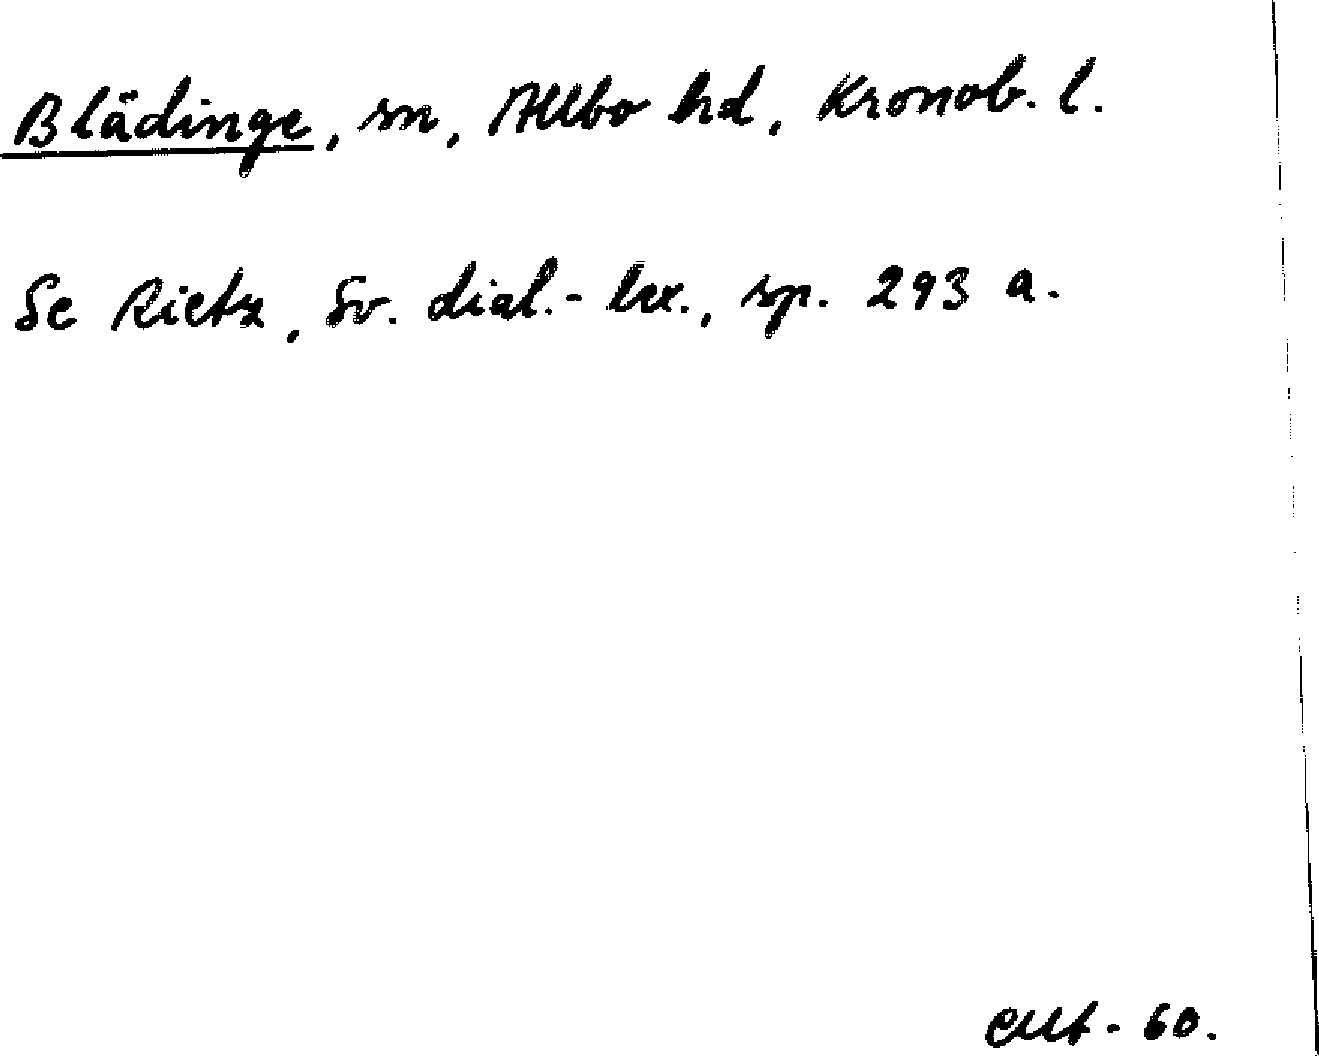 Blädinge, sn, Allbo hd, Kronob. l.
Se Rietz, Sv. dial.-lex., sp. 293 a.
60.